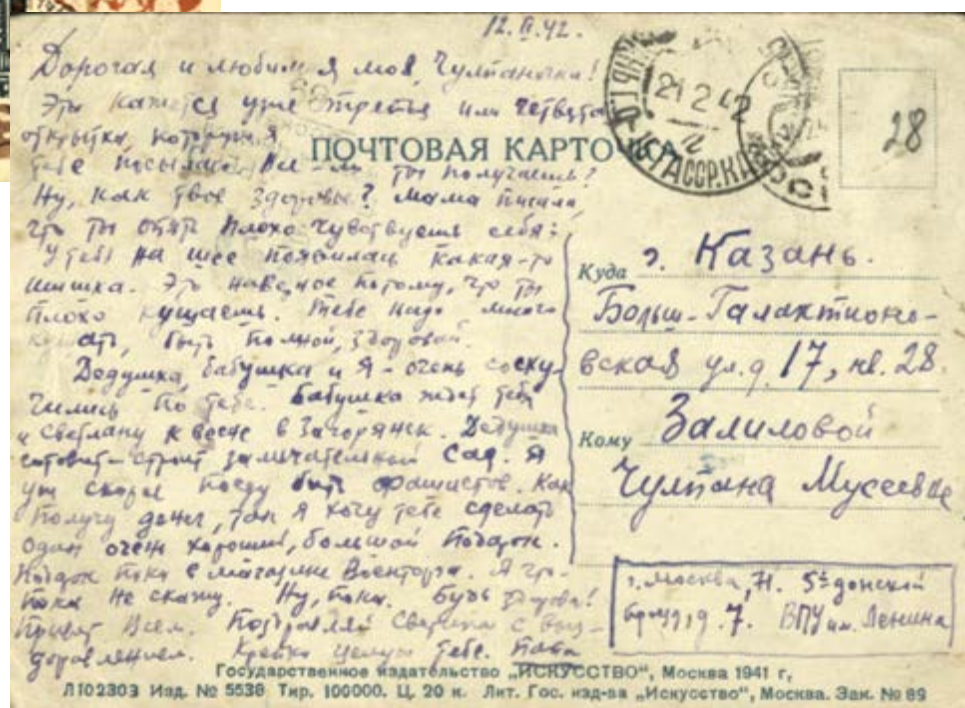 12.II.42.
Дорогая и любимая моя, Чулпаночка!
Это кажется уже третья или четвертая
открытка, которую я
тебе посылаю. Все-ли ты получаешь?
ПОЧТОВАЯ КАРТОЧКА
Ну, как твое здоровье? Мама писала,
что ты опять плохо чувствуешь себя:
У тебя на шее появилась какая-то
шишка. Это наверное потому, что ты
плохо кушаешь. Тебе надо много
кушать, быть полной, здоровой.
Дедушка, бабушка и я - очень соску-
чились по тебе. Бабушка ждет тебя
и Светлану к весне в Загорянск. Дедушка
готовит-строит замечательный сад. Я
уж скорее поеду бить фашистов. Как
получу деньги, так я хочу тебе сделать
один очень хороший, большой подарок.
Подарок пока в магазине Военторга. А что-
пока не скажу. Ну, пока. Будь здорова!
Привет всем. Поздравляй с выз-
доровлением. Крепко целую тебя. Папа
21 2 42
28
Куда г. Казань.
Больш-Галактионо-
вская ул. д. 17, кв. 28.
Кому Залиловой
Чулпана Мусеевне
г. Москва, 71. 5й донской
д. 7. ВПУ им. Ленина
Государственное издательство „ИСКУССТВО“, Москва 1941 г.
Л102303 Изд. № 5538 Тир. 100000. Ц. 20 к. Лит. Гос. изд-ва „Искусство“, Москва. Зак. № 89